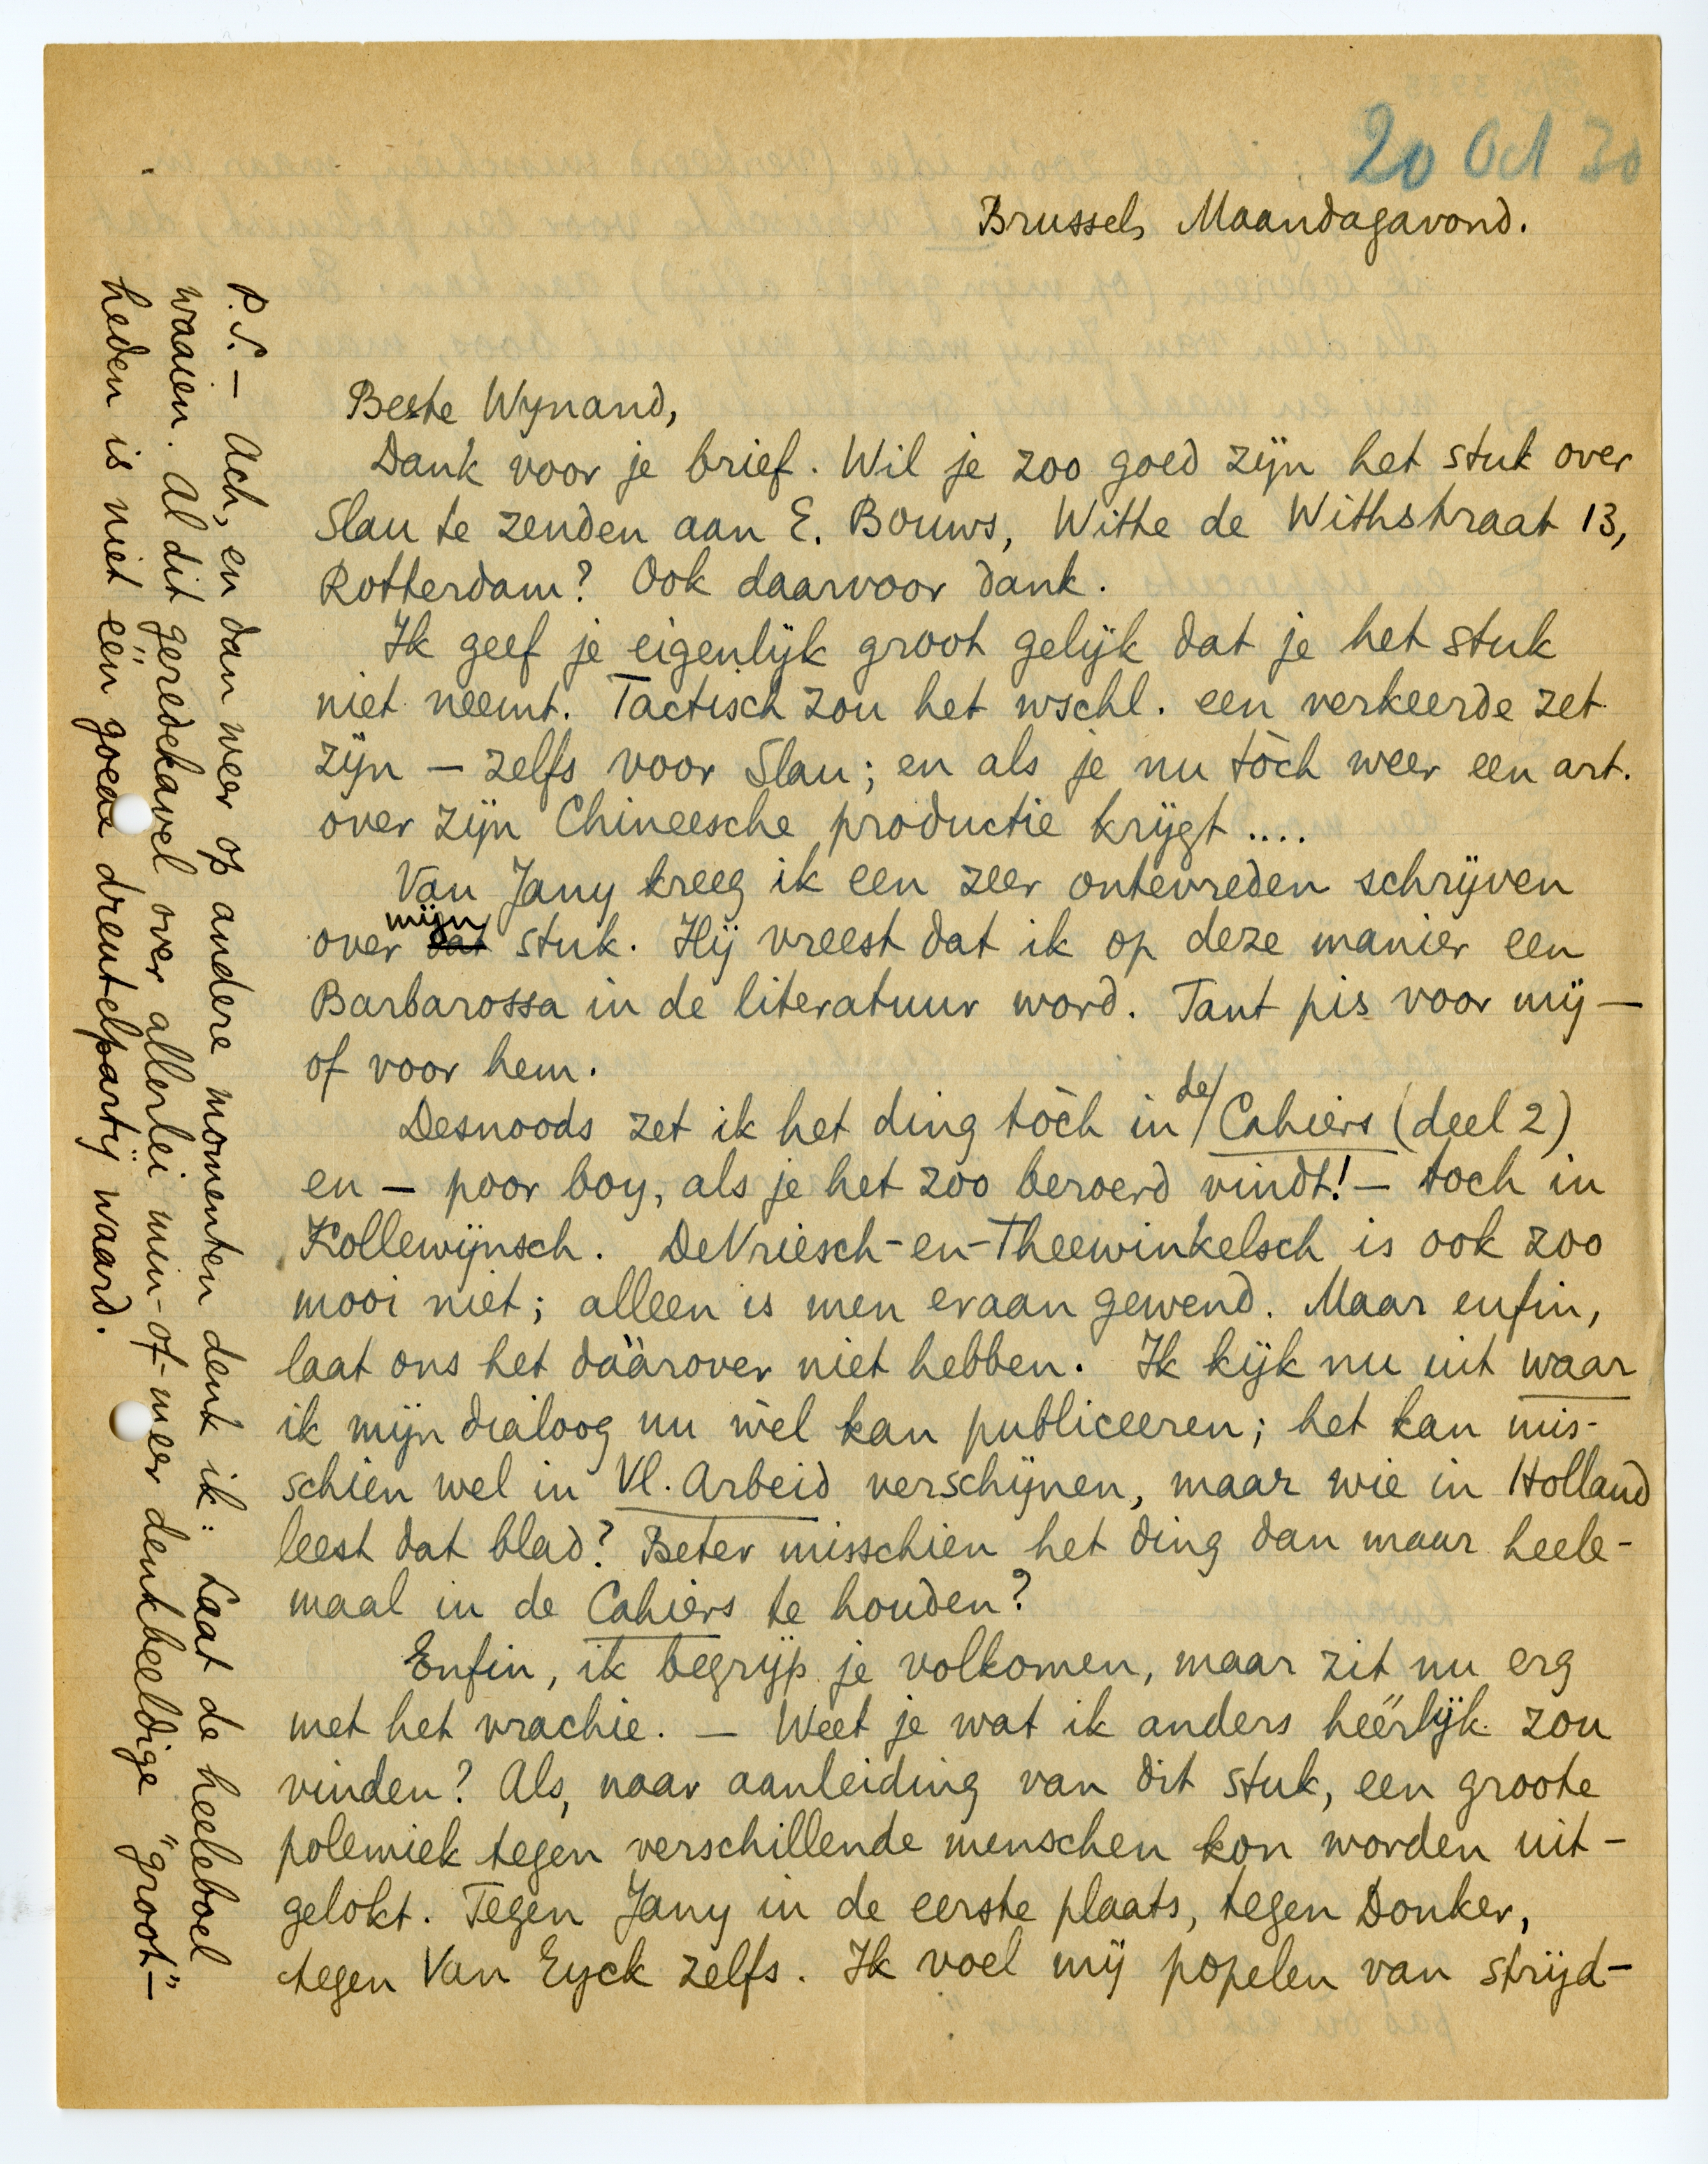 20 Oct 30
Brussel, Maandagavond.
Beste Wynand,
Dank voor je brief. Wil je zoo goed zijn het stuk over
Slau te zenden aan E. Bouws, Witte de Withstraat 13,
Rotterdam? Ook daarvoor dank.
Ik geef je eigenlijk groot gelijk dat je het stuk
niet neemt. Tactisch zou het wschl. een verkeerde zet
zijn — zelfs voor Slau; en als je nu tòch weer een art.
over zijn Chineesche productie krijgt ....
Van Jany kreeg ik een zeer ontevreden schrijven
over dat mijn stuk. Hij vreest dat ik op deze manier een
Barbarossa in de literatuur word. Tant pis voor mij —
of voor hem.
Desnoods zet ik het ding tòch in de Cahiers (deel 2)
en — poor boy, als je het zoo beroerd vindt! — toch in
Kollewijnsch. DeVriesch-en-Theewinkelsch is ook zoo
mooi niet; alleen is men eraan gewend. Maar enfin,
laat ons het dáárover niet hebben. Ik kijk nu uit waar
ik mijn dialoog nu wèl kan publiceeren; het kan mis-
schien wel in Vl. Arbeid verschijnen, maar wie in Holland
leest dat blad? Beter misschien het ding dan maar heele-
maal in de Cahiers te houden?
Enfin, ik begrijp je volkomen, maar zit nu erg
met het vrachie. — Weet je wat ik anders héérlijk zou
vinden? Als, naar aanleiding van dit stuk, een groote
polemiek tegen verschillende menschen kon worden uit-
gelokt. Tegen Jany in de eerste plaats, tegen Donker,
tegen Van Eyck zelfs. Ik voel mij popelen van strijd-
P.S. — Ach, en dan weer op andere momenten denk ik: Laat de heeleboel
waaien. Al dit geredekavel over allerlei min-of-meer denkbeeldige "groot"-
heden is niet één goede drentelpartij waard.